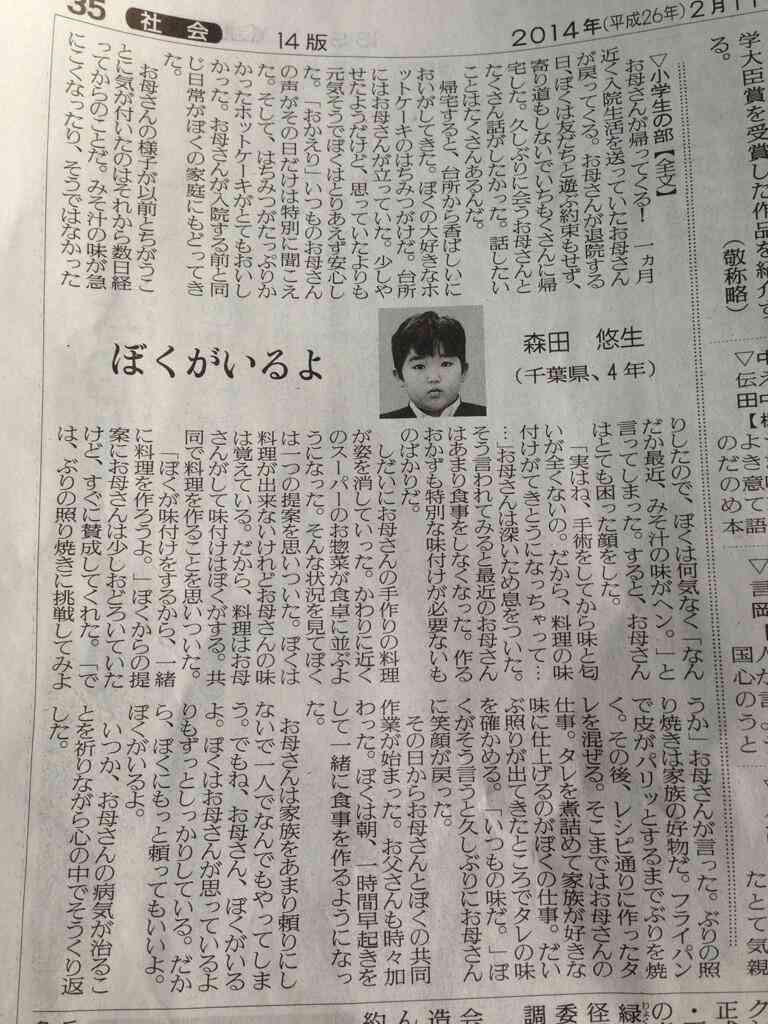 35 社会 14版 2014年(平成26年)2月11
学大臣賞を受賞した作品を紹介す
る。
(敬称略)
▽小学生の部【全文】
お母さんが帰ってくる! 一ヵ月
近く入院生活を送っていたお母さん
が戻ってくる。お母さんが退院する
日、ぼくは友だちと遊ぶ約束もせず、
寄り道もしないでいちもくさんに帰
宅した。久しぶりに会うお母さんと
たくさん話がしたかった。話したい
ことはたくさんあるんだ。
帰宅すると、台所から香ばしいに
おいがしてきた。ぼくの大好きなホ
ットケーキのはちみつがけだ。台所
にはお母さんが立っていた。少しや
せたようだけど、思っていたよりも
元気そうでぼくはとりあえず安心し
た。「おかえり」いつものお母さん
の声がその日だけは特別に聞こえ
た。そして、はちみつがたっぷりか
かったホットケーキがとてもおいし
かった。お母さんが入院する前と同
じ日常がぼくの家庭にもどってき
た。
お母さんの様子が以前とちがうこ
とに気が付いたのはそれから数日経
ってからのことだ。みそ汁の味が急
にこくなったり、そうではなかった
ぼくがいるよ
森田 悠生
(千葉県、4年)
りしたので、ぼくは何気なく「なん
だか最近、みそ汁の味がヘン。」と
言ってしまった。すると、お母さん
はとても困った顔をした。
「実はね、手術をしてから味と匂
いが全くないの。だから、料理の味
付けがてきとうになっちゃって…
…」お母さんは深いため息をついた。
そう言われてみると最近のお母さん
はあまり食事をしなくなった。作る
おかずも特別な味付けが必要ないも
のばかりだ。
しだいにお母さんの手作りの料理
が姿を消していった。かわりに近く
のスーパーのお惣菜が食卓に並ぶよ
うになった。そんな状況を見てぼく
は一つの提案を思いついた。ぼくは
料理が出来ないけれどお母さんの味
は覚えている。だから、料理はお母
さんがして味付けはぼくがする。共
同で料理を作ることを思いついた。
「ぼくが味付けをするから、一緒
に料理を作ろうよ。」ぼくからの提
案にお母さんは少しおどろいていた
けど、すぐに賛成してくれた。「で
は、ぶりの照り焼きに挑戦してみよ
うか」お母さんが言った。ぶりの照
り焼きは家族の好物だ。フライパン
で皮がパリッとするまでぶりを焼
く。その後、レシピ通りに作ったタ
レを混ぜる。そこまではお母さんの
仕事。タレを煮詰めて家族が好きな
味に仕上げるのがぼくの仕事。だい
ぶ照りが出てきたところでタレの味
を確かめる。「いつもの味だ。」ぼ
くがそう言うと久しぶりにお母さん
に笑顔が戻った。
その日からお母さんとぼくの共同
作業が始まった。お父さんも時々加
わった。ぼくは朝、一時間早起きを
して一緒に食事を作るようになっ
た。
お母さんは家族をあまり頼りにし
ないで一人でなんでもやってしま
う。でもね、お母さん、ぼくがいる
よ。ぼくはお母さんが思っているよ
りもずっとしっかりしている。だか
ら、ぼくにもっと頼ってもいいよ。
ぼくがいるよ。
いつか、お母さんの病気が治るこ
とを祈りながら心の中でそうくり返
した。